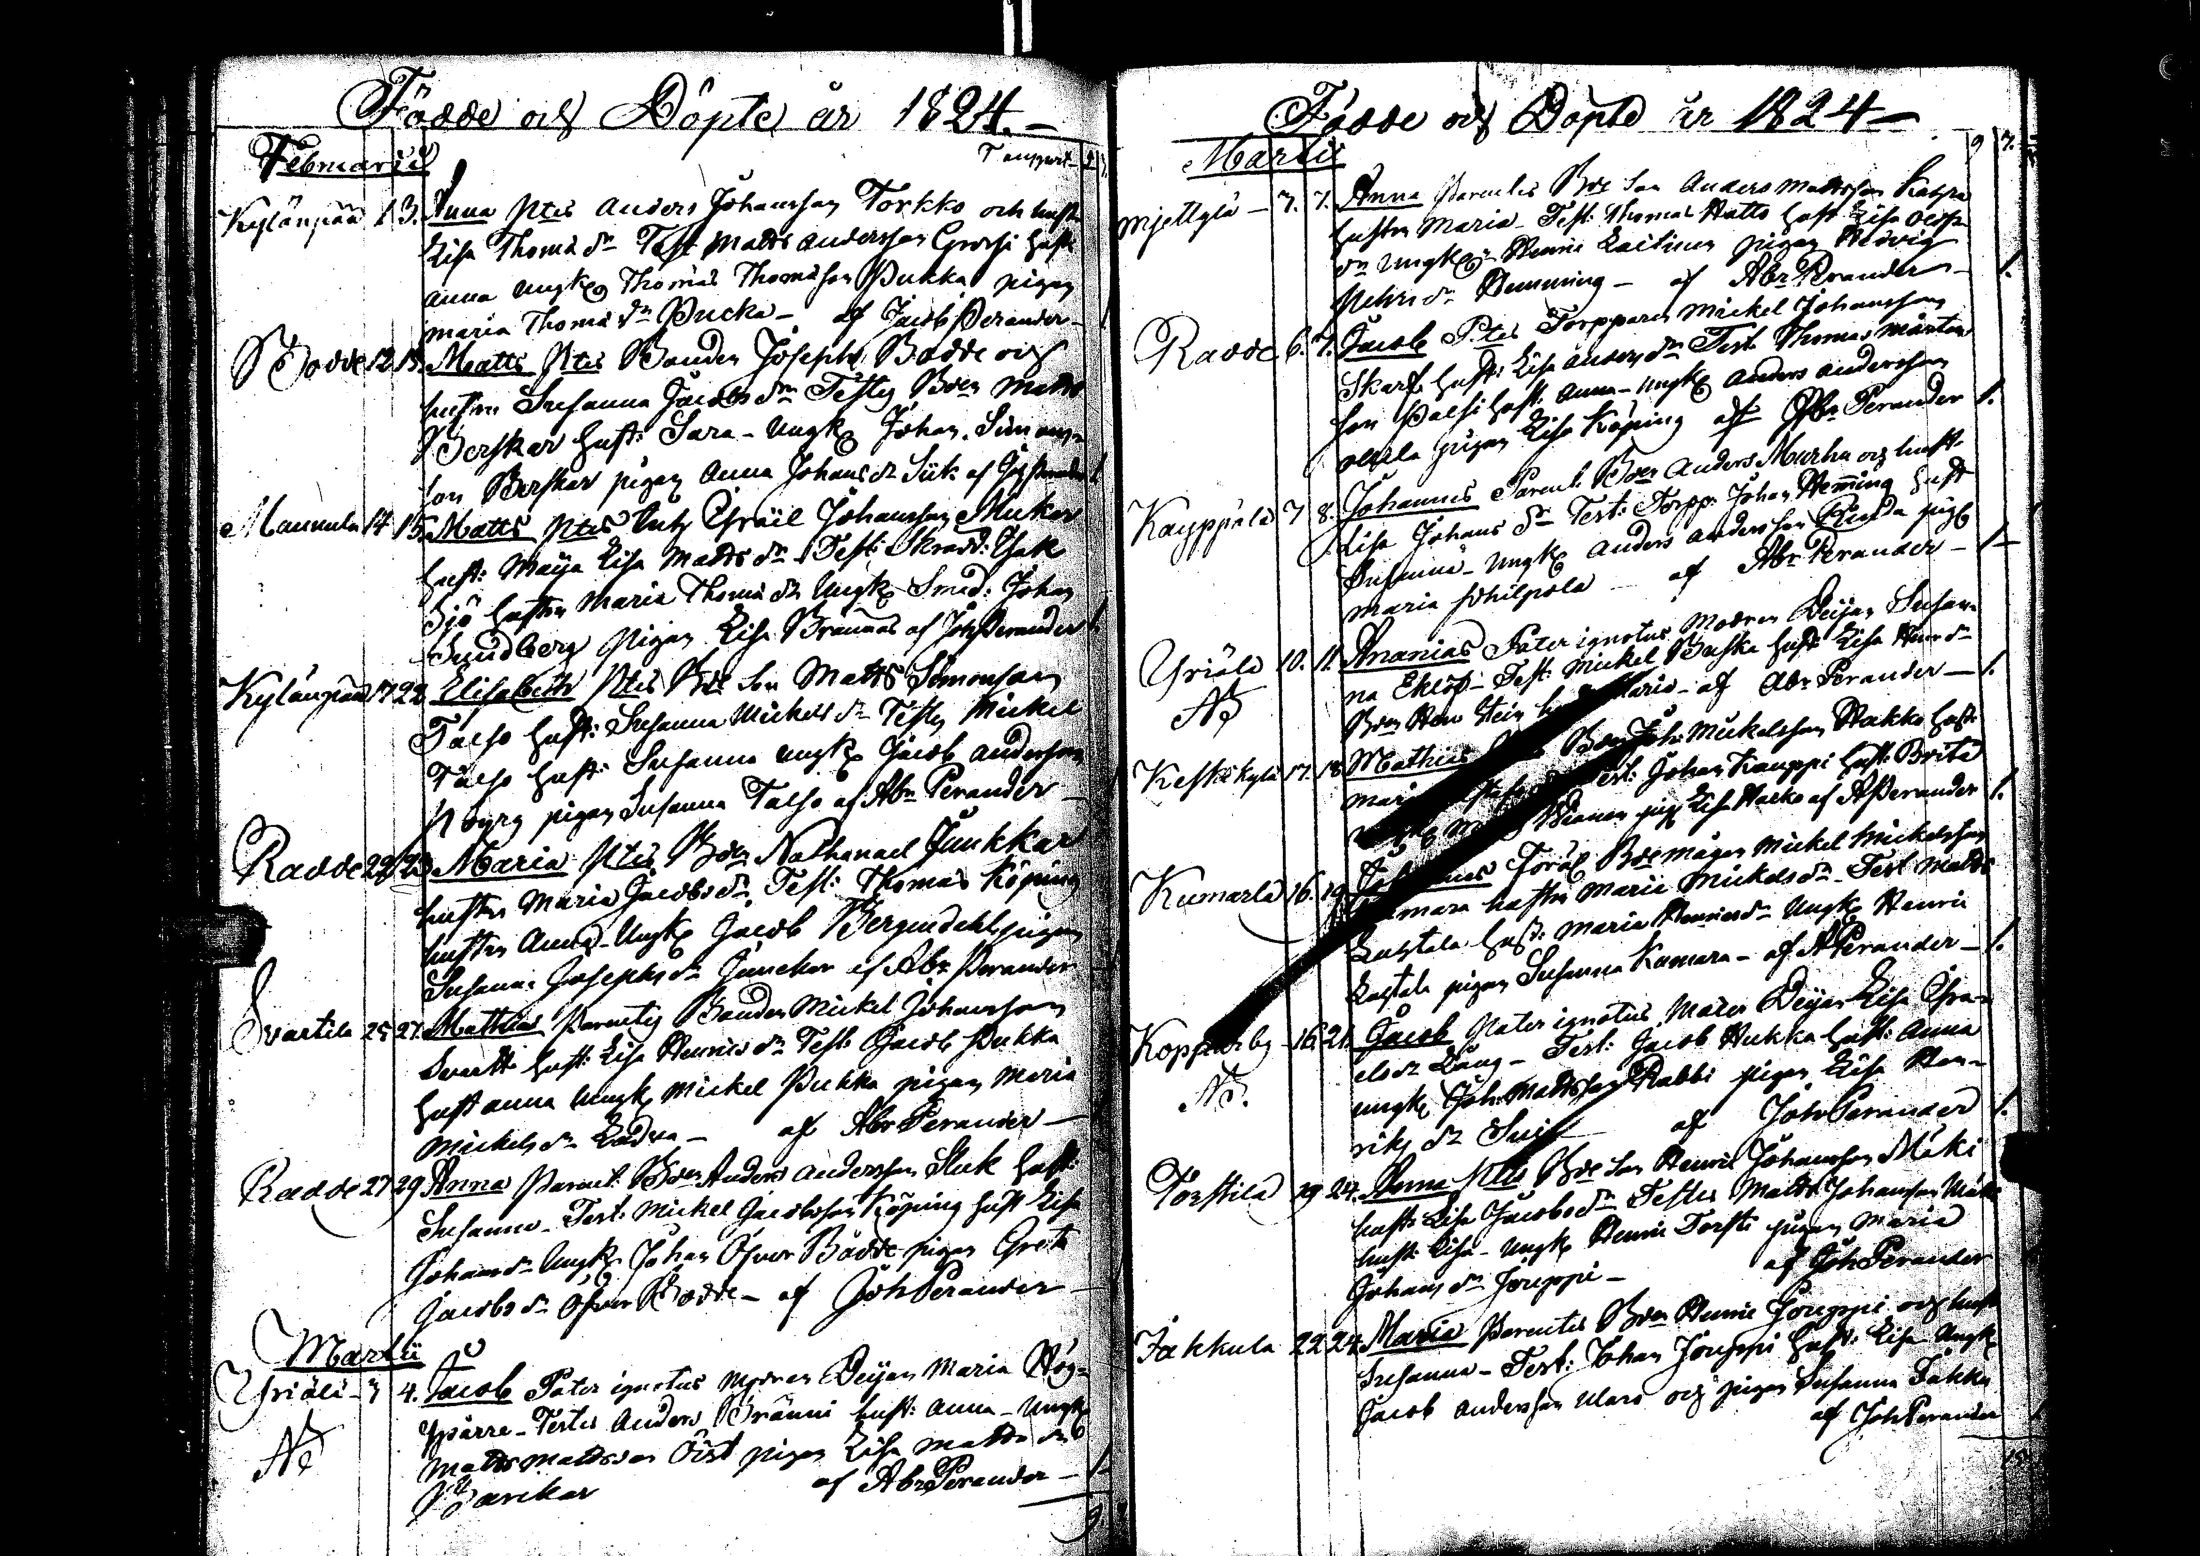 Födde och Döpte år 1824.
Februarii
Transport
Kylänpää 13. Anna Ptes Anders Johansson Torkko och hust.
Lisa Thomæ dr Test Matts Andersson Grossi hust.
Anna ungk Thomas Thomasson Pukka pigan
Maria Thomæ dr Pucka – af Jacob Perander – 1
Bodde 12 13. Matts Ptes Bonden Joseph Bodde och
hustru Susanna Jacobs dr Testes Bden Matts
Berskar hust: Sara – Ungk Johan Simons-
son Berskar pigan Anna Johans dr Siik af Perander 1
Mannula 14 15. Matts Ptes Johansson
hust: Maija Lisa Matts dr Test: Skrädd: Isak
Sjö hustru Maria Thomæ dr Ungk Smed: Johan
Sundberg pigan Lisa Brännas af Joh Perander 1.
Kylänpää 17 22. Elisabeth Ptes Bde Son Matts Simonsson
Talso hust: Susanna Mickels dr Testes Mickel
Talso hust: Susanna ungk Jacob Andersson
pigan Susanna Talso af Abr Perander –
Radde 22 23 Maria Ptes Bden Nathanael Junkkar
hustru Maria Jacobs dr Test: Thomas Köping
hustru Anna – Ungk Jacob Bergendahl pigan
Susanna Josephs dr Junckar af Abr Perander
Svartila 25 27. Matthias Parentes Bonden Mickel Johansson
Svartti hust: Lisa Henrics dr Test: Jacob Pukka
hust Anna Ungk Mickel Pukka pigan Maria
Mickels dr – af Abr Perander –
Radde 27 29 Anna Parent: Bden Anders Andersson Sluk hust:
Susanna – Test: Mickel Jacobsson Köping hust Lisa
Johans dr Ungk Johan Öfver Bodde pigan Greta
Jacobs dr Öfver Bodde – af Joh Perander –
Martii
Yriälä – 3 4. Jacob Pater ignotus modren Deijan Maria Hög-
Testes Anders Bränni hust: Anna – Ungk
Matts Mattsson Öist pigan Lisa Matts dr
NB
Barikar af Abr Perander – 1
9.
Födde och Döpte år 1824 –
Martii 9 7.
Mjettylä – 7. 7. Anna Parentes Bde Son Anders Mattsson Kaspa
hustru Maria – Test: Thomas Hatto hust Lisa
dr Ungk Henric Laitinen pigan Hedvig
Pehrs dr Hemming – af Abr Perander – 1.
Radde 6. 7. Jacob Ptes Torpparen Mickel Johansson
Skarf hust: Lisa Anders dr Test Thomas Mårtens
son Palsi hust. Anna – ungk Anders Andersson
pigan Lisa Köping af Abr Perander 1.
Kauppala 7 8. Johannes Parent: Bden Anders Marha och hust
Lisa Johans dr Test: Torpp: Johan Hemming hust
Susanna – Ungk Anders Andersson pig
Maria Philpola – af Abr Perander – 1 –
Yriälä 10. 11. Ananias Pater ignotus Modren Deijan Susan-
na Eklöf – Test: Mickel Buska hust Lisa Henr dr
NB Bden Hen Stein Maria – af Abr Perander – 1.
Keskikylä 17. 18 Mathias Bden Joh: Mickelsson Hakko hust:
Test: Johan Kauppi hust: Brita
pig Lisa Hacko af A Perander 1.
Kumarla 16. 19 Johannes Föräl Bde mågen Mickel Mickelsson
Kumara hustru Maria Mickels dr – Test Matts
Laxtala hust: Maria Henrics dr Ungk Henric
Laxtala pigan Susanna Kumara – af A Perander – 1.
Kopparby – 16. 21. Jacob Pater ignotus Mater Deijan Lisa Isra-
els dr Lång – Test: Jacob Hukka hust: Anna
NB. ungk Joh: Mattsson Rabbi pigan Lisa Hen-
riks dr af Joh Perander 1.
Torstila 19 24. Anna Ptes Bde Son Henric Johansson Mäki
hust: Lisa Jacobs dr Testes Matts Johansson Mäki
hust: Lisa – Ungk Henric Torsti pigan Maria
Johans dr Jouppi – af Joh Perander
Jakkula 22 24. Maria Parentes Bden Henric Jouppi och hust
Susanna – Test: Johan Jouppi hust: Lisa Ungk
Jacob Andersson och pigan Susanna Jakka
af Joh Perander